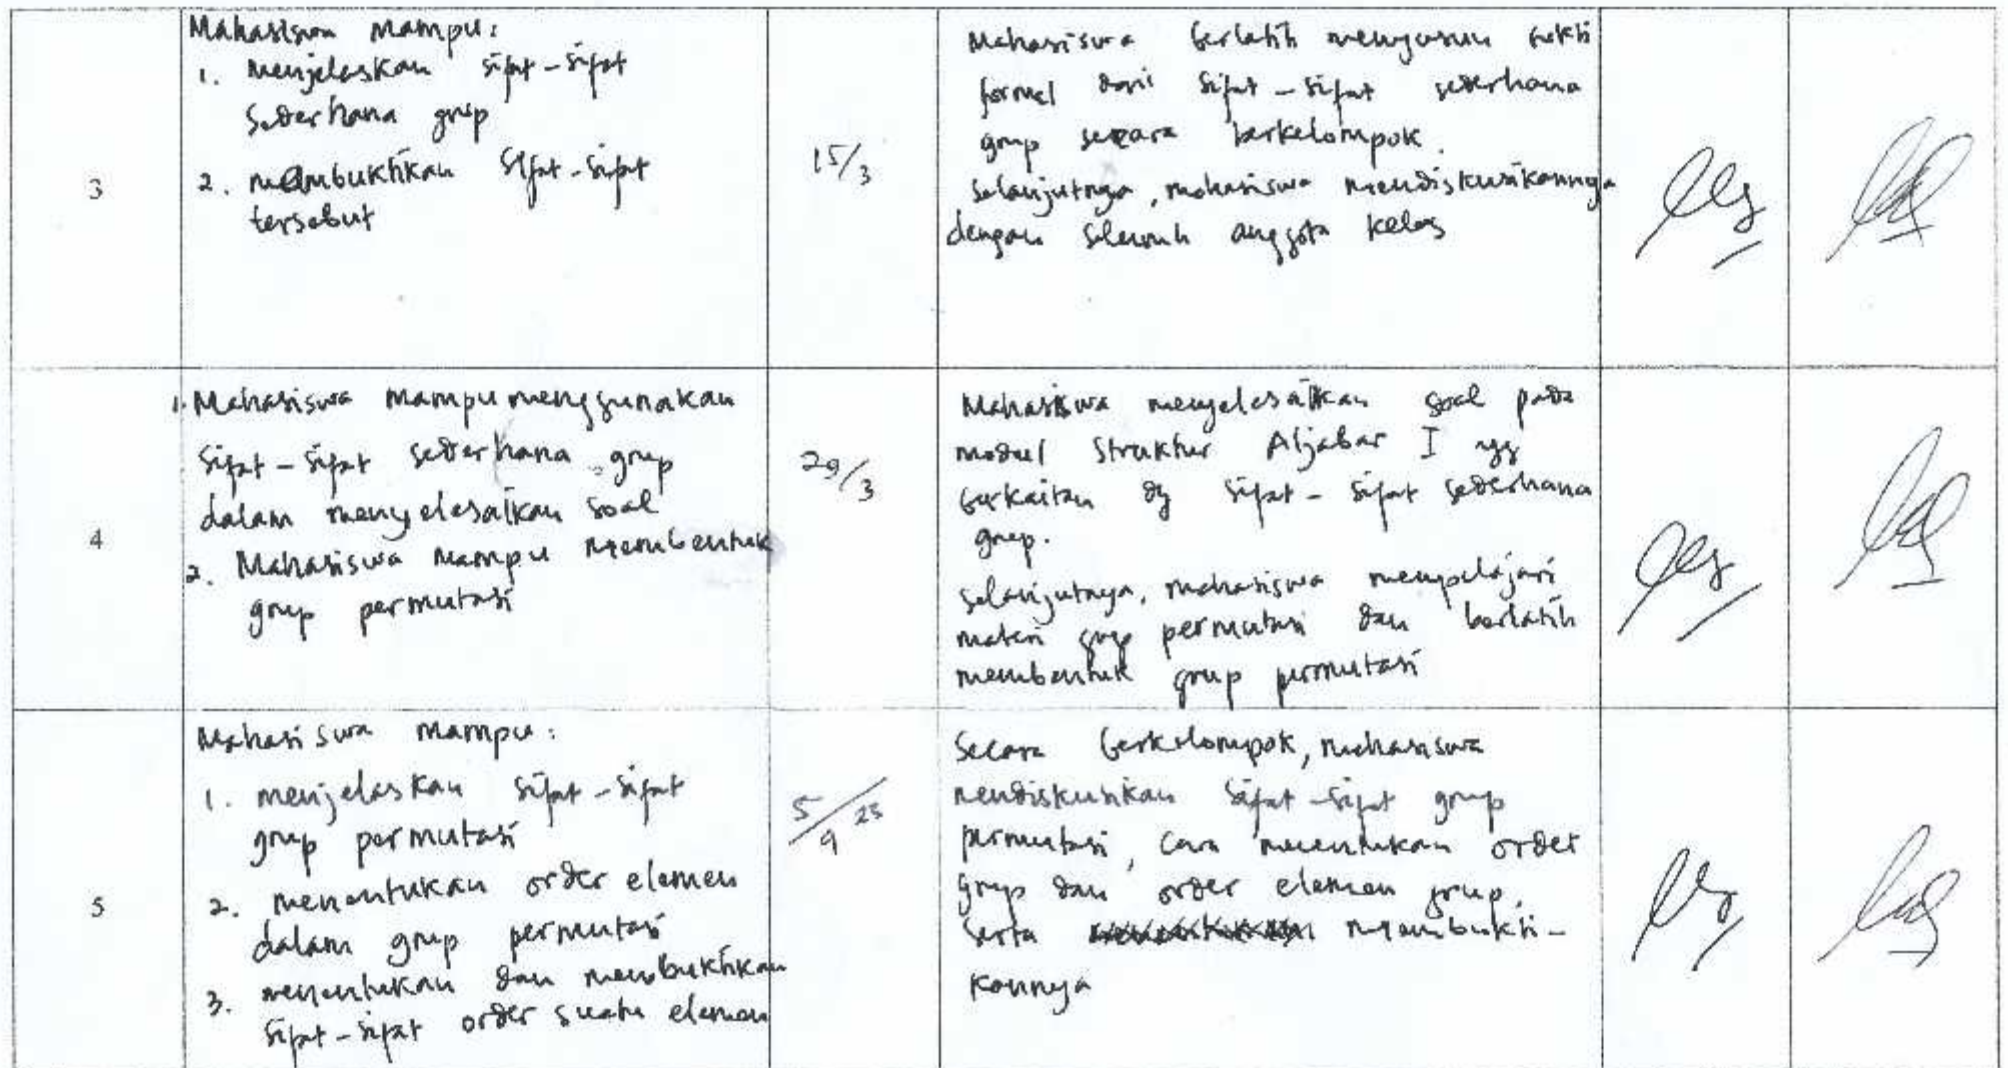 3
Mahasiswa mampu:
1. menjelaskan sifat-sifat
sederhana grup
2. membuktikan sifat-sifat
tersebut
15/3
Mahasiswa berlatih menyusun bukti
formal dari sifat-sifat sederhana
grup secara berkelompok.
Selanjutnya, mahasiswa mendiskusikannya
dengan seluruh anggota kelas
4
1. Mahasiswa mampu menggunakan
sifat-sifat sederhana grup
dalam menyelesaikan soal
2. Mahasiswa mampu membentuk
grup permutasi
29/3
Mahasiswa menyelesaikan soal pada
modul Struktur Aljabar I yg
berkaitan dg sifat-sifat sederhana
grup.
selanjutnya, mahasiswa mempelajari
materi grup permutasi dan berlatih
membentuk grup permutasi
5
Mahasiswa mampu:
1. menjelaskan sifat-sifat
grup permutasi
2. menentukan order elemen
dalam grup permutasi
3. menentukan dan membuktikan
sifat-sifat order suatu elemen
5/9 23
Secara berkelompok, mahasiswa
mendiskusikan sifat-sifat grup
permutasi, cara menentukan order
grup dan order elemen grup,
serta membukti-
kannya